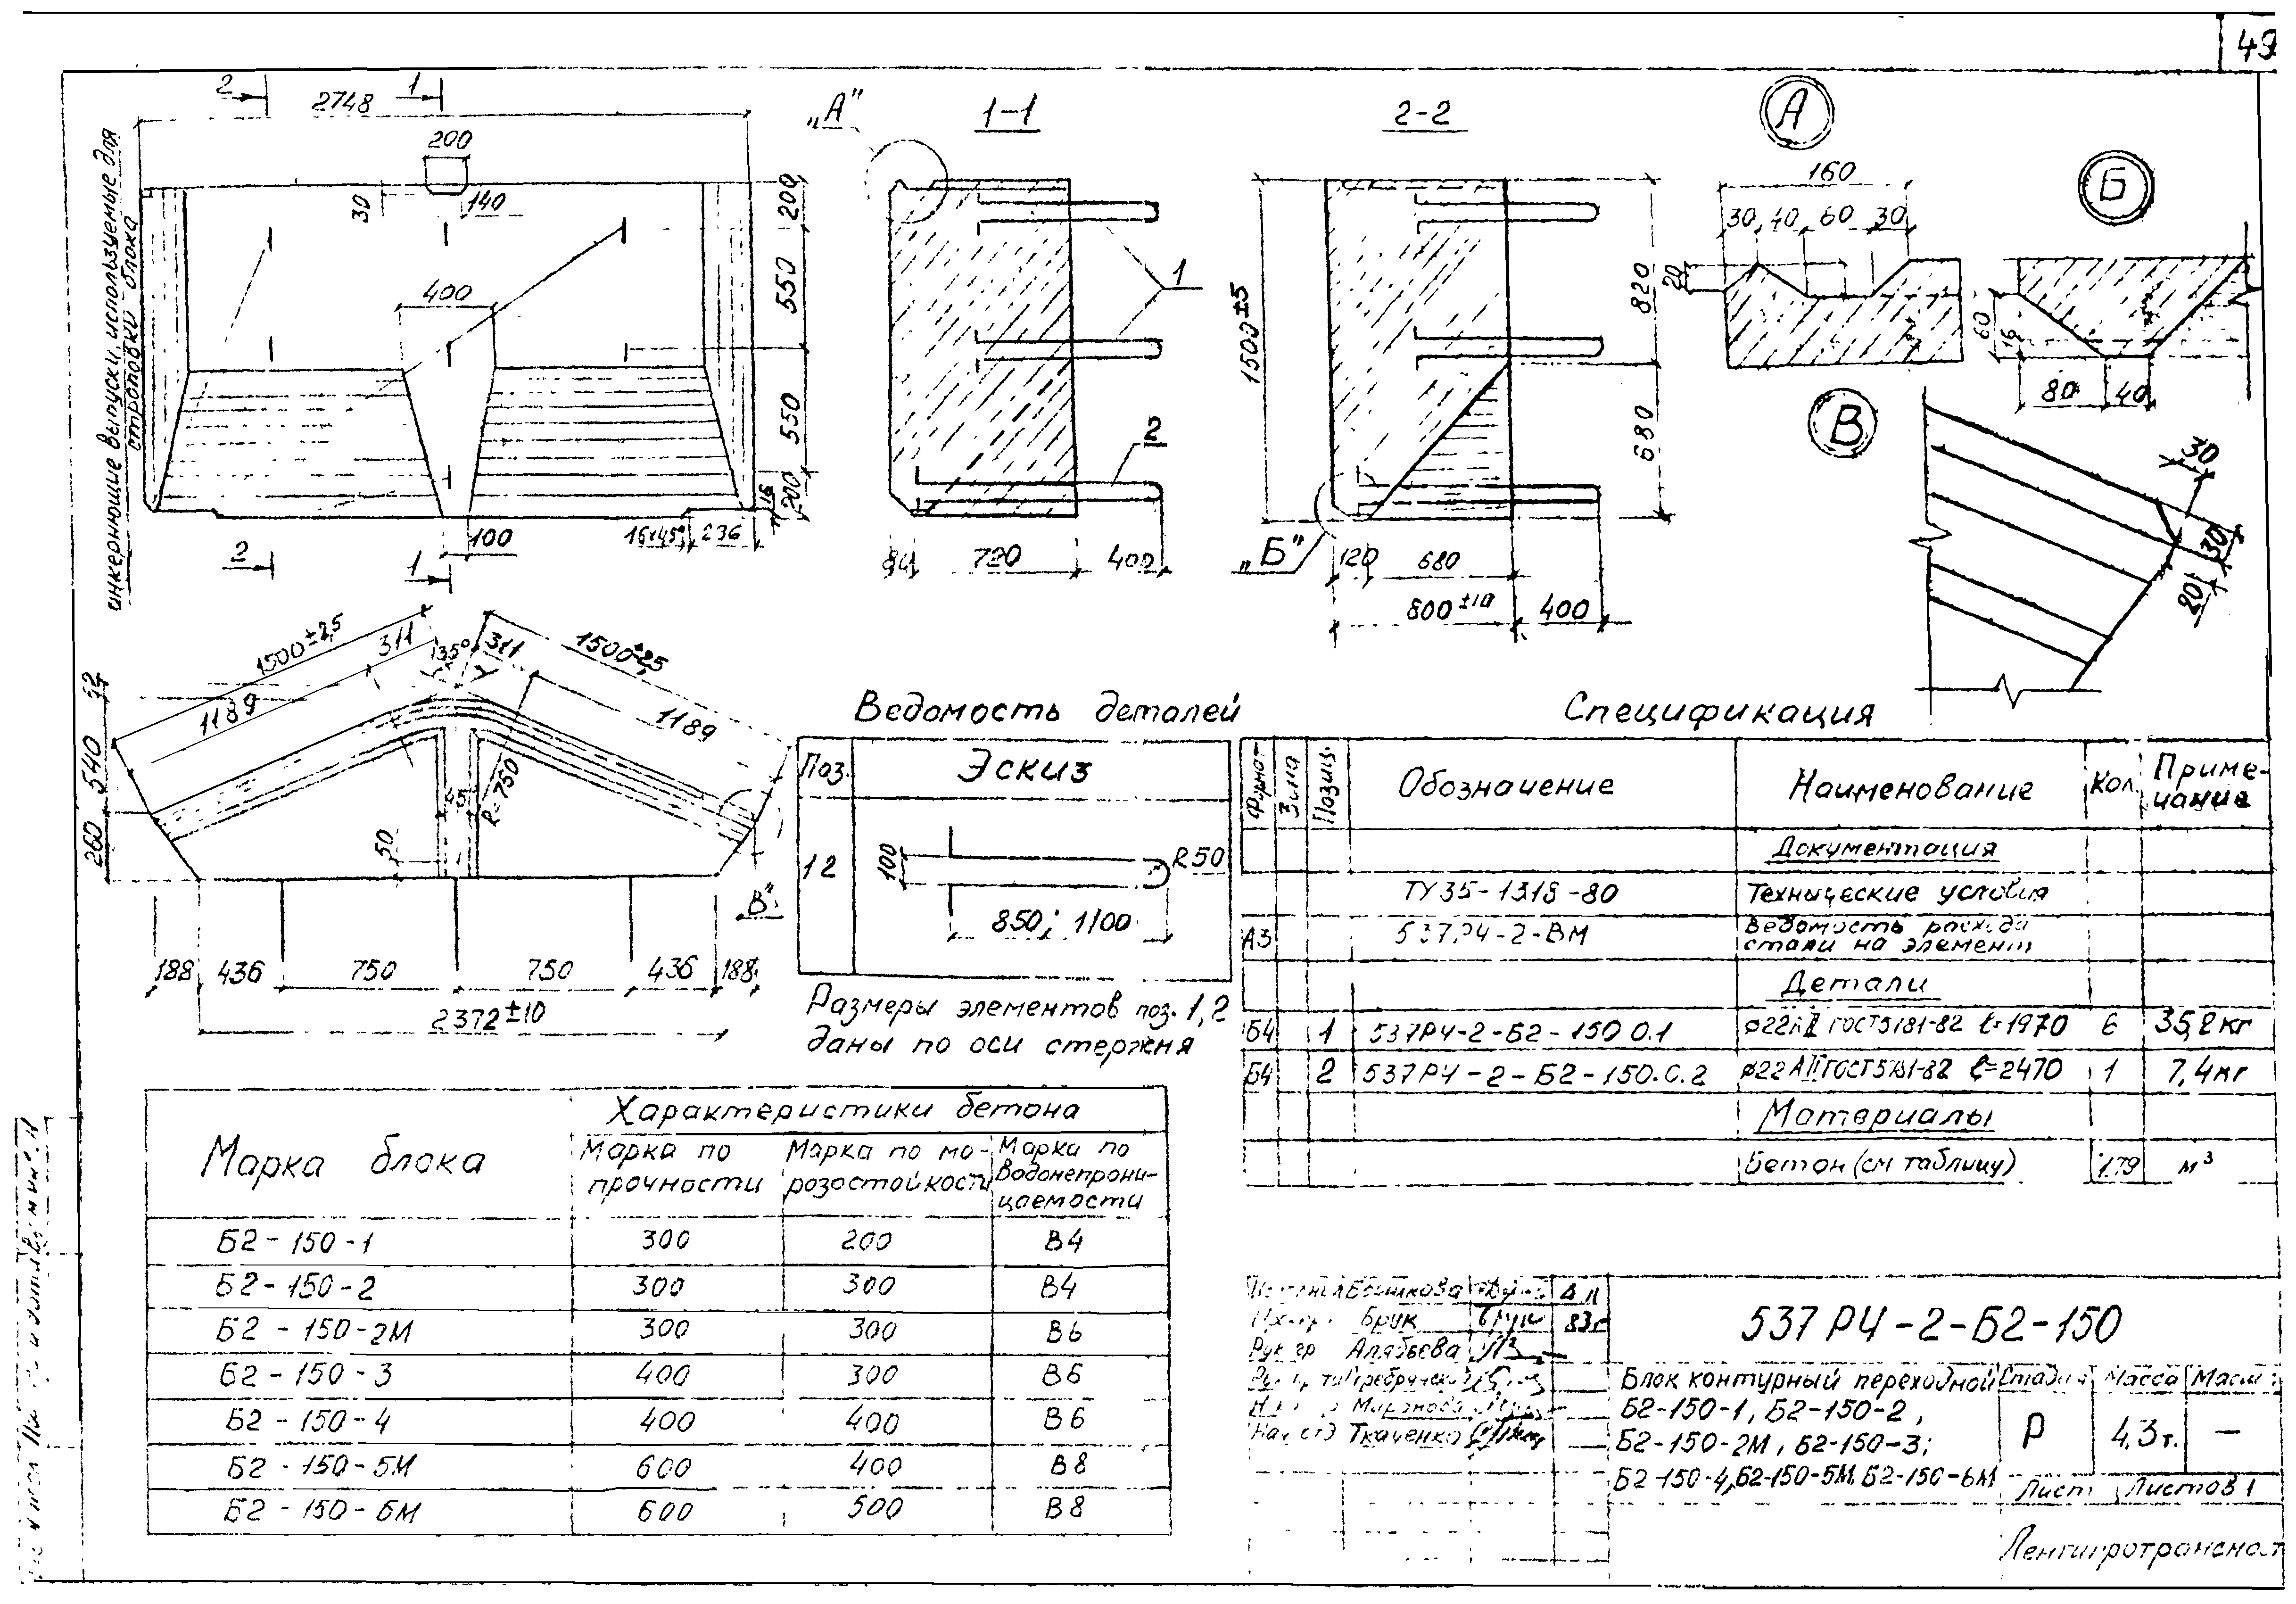 49
2
1
2748
200
30
140
400
200
550
550
200
16
100
16х45°
236
2
1
анкерные выпуски, используемые для
строповки блока
„А"
1-1
1
2
720
400
2-2
1500±5
820
680
„Б"
120
680
800±10
400
А
160
30
40
60
30
20
Б
60
16
80
40
В
30
30
20
1500±2,5
311
135°
311
1500±2,5
1189
1189
540
260
R-750
50
„В"
188
436
750
750
436
188
2372±10
Ведомость деталей
Поз.
Эскиз
1 2
100
R50
850; 1100
Размеры элементов поз. 1, 2
даны по оси стержня
Спецификация
Формат
Зона
Позиц.
Обозначение
Наименование
Кол.
Приме-
чание
Документация
ТУ35-1318-80
Технические условия
А3
537.РЧ-2-ВМ
Ведомость расхода
стали на элемент
Детали
Б4 1 537РЧ-2-Б2-150 0.1 ⌀22АII ГОСТ5781-82 ℓ=1970 6 35,2кг
Б4 2 537РЧ-2-Б2-150.0.2 ⌀22АII ГОСТ5781-82 ℓ=2470 1 7,4кг
Материалы
Бетон (см таблицу) 1,79 м³
Марка блока
Характеристики бетона
Марка по
прочности
Марка по мо-
розостойкости
Марка по
водонепрони-
цаемости
Б2-150-1 300 200 В4
Б2-150-2 300 300 В4
Б2-150-2М 300 300 В6
Б2-150-3 400 300 В6
Б2-150-4 400 400 В6
Б2-150-5М 600 400 В8
Б2-150-6М 600 500 В8
Брук
83г
Рук гр Алябьева
Миронова
Нач отд Ткаченко
537РЧ-2-Б2-150
Блок контурный переходной
Б2-150-1, Б2-150-2,
Б2-150-2М, Б2-150-3;
Б2-150-4, Б2-150-5М. Б2-150-6М
Стадия
Масса
Р
4,3т.
—
Лист
Листов 1
Ленгипротрансмост